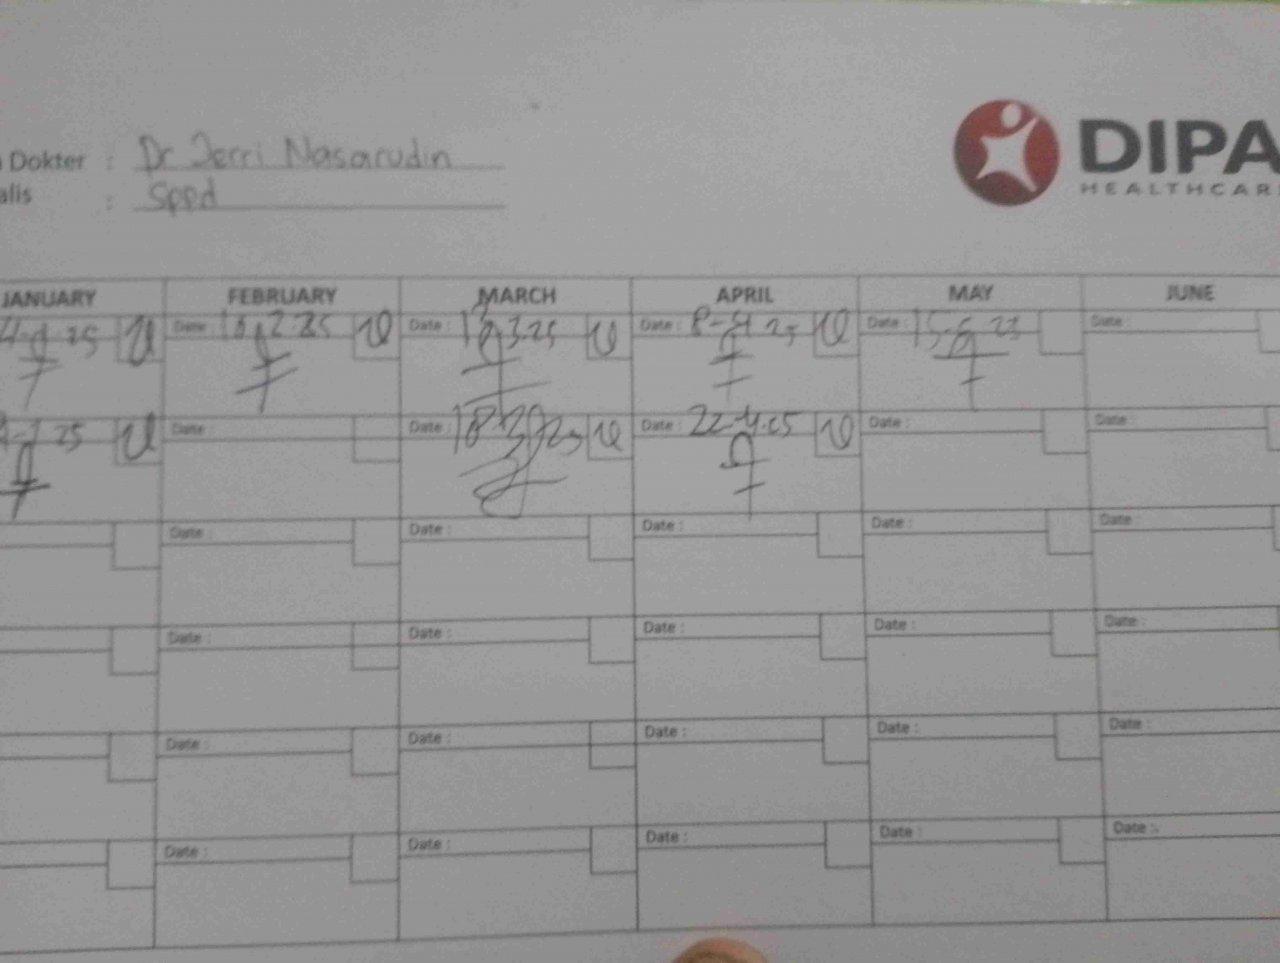 Dokter : Dr Jerri Nasarudin
alis : Sppd
DIPA
HEALTHCAR
JANUARY FEBRUARY MARCH APRIL MAY JUNE
25 Date : 2-25 Date : 3-25 Date : 8-4-25 Date : Date :
25 Date : Date : 18-3-25 Date : 22-4-25 Date : Date :
Date : Date : Date : Date : Date
Date : Date : Date : Date : Date :
Date : Date : Date : Date : Date :
Date : Date : Date : Date : Date :